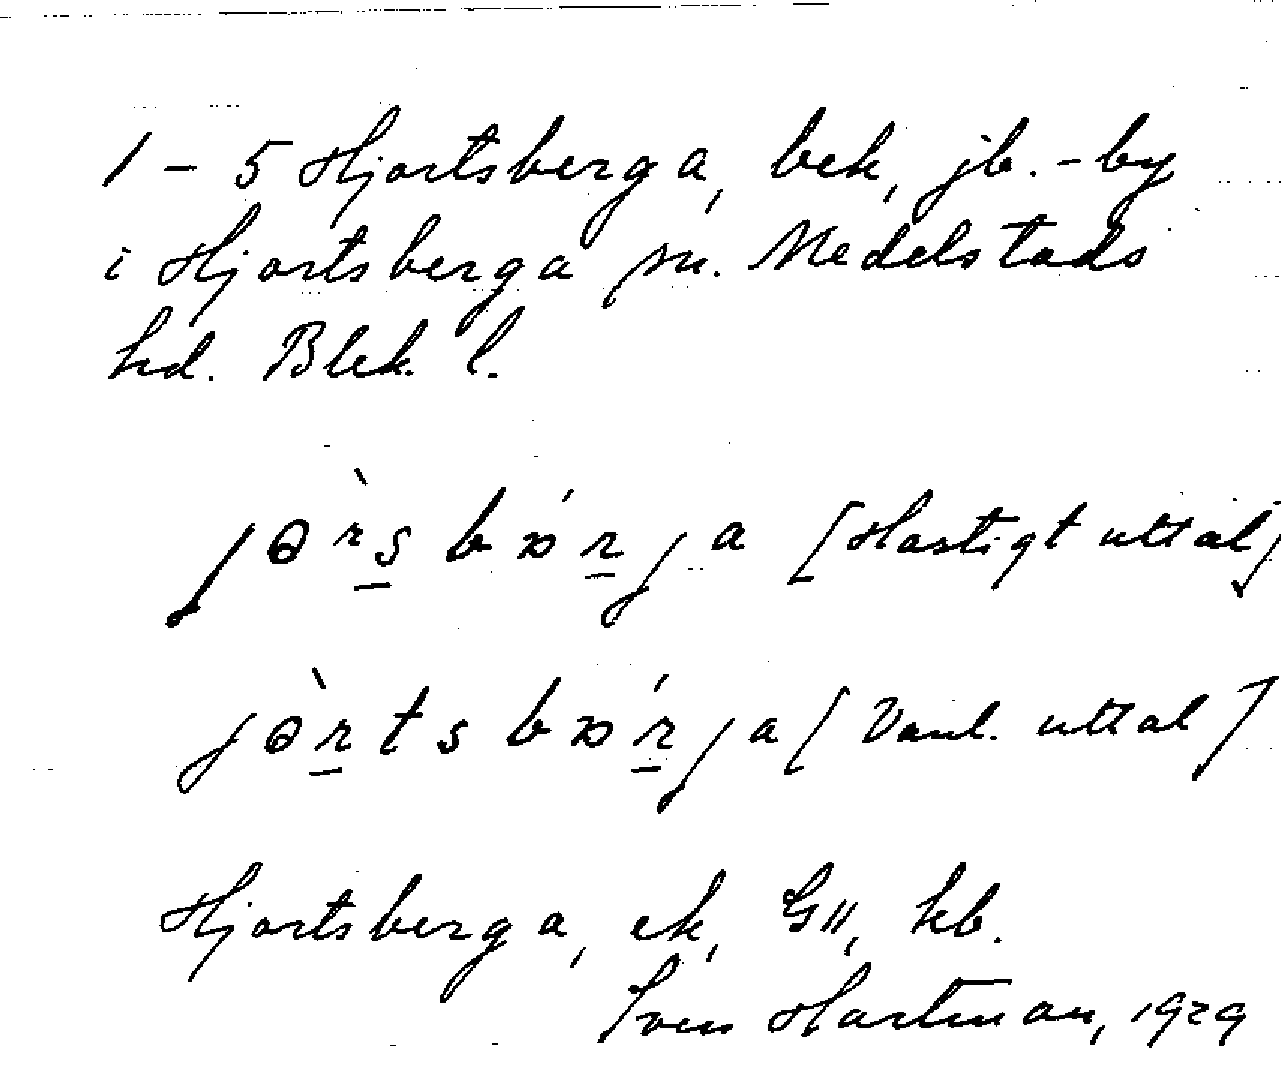 1 – 5 Hjortsberga, bek, jb. - by
i Hjortsberga sn. Medelstads
hd. Blek. l.
jɵ̀rs bɔ́rja [Hastigt uttal]
jɵ̀rts bɔ́rja [Vanl. uttal]
Hjortsberga, ek, G11, kb.
Sven Hartman, 1929